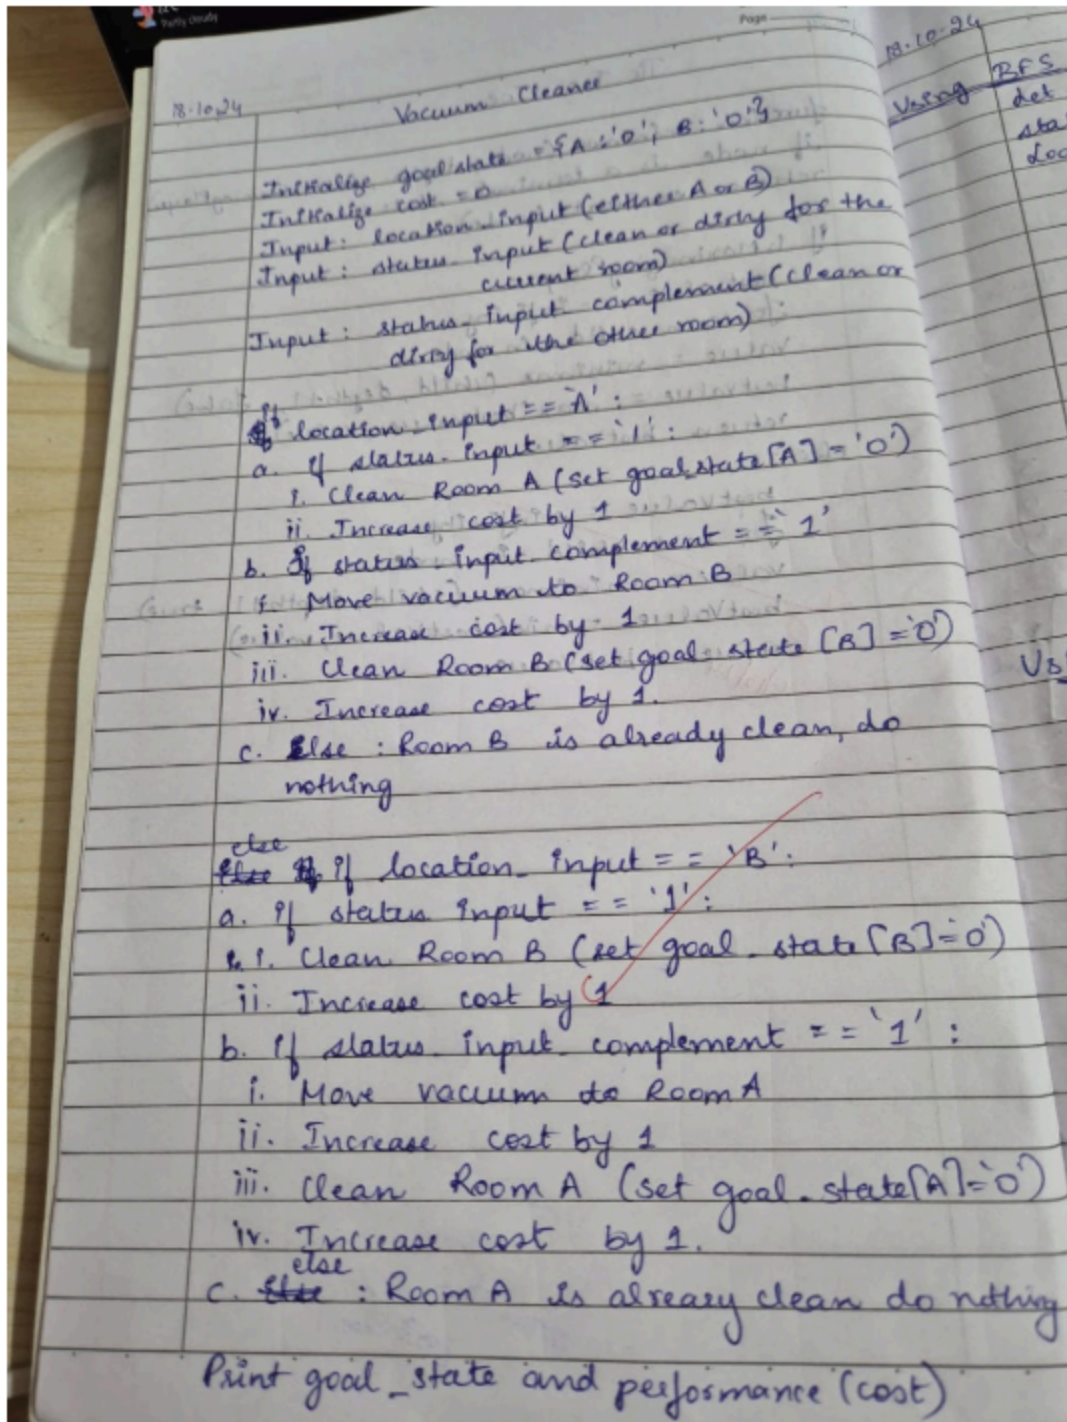 Partly cloudy
Page
18.10.24
Vacuum Cleaner
Initialize goal state = {A:'0', B:'0'}
Initialize cost = 0
Input: location_input (either A or B)
Input: status_input (clean or dirty for the
current room)
Input: status_input_complement (clean or
dirty for the other room)
if location_input == 'A':
a. if status_input == '1':
i. Clean Room A (set goal_state[A] = '0')
ii. Increase cost by 1
b. If status_input_complement == '1'
i. Move vacuum to Room B
ii. Increase cost by 1
iii. Clean Room B (set goal_state [B] = '0')
iv. Increase cost by 1.
c. Else : Room B is already clean, do
nothing
else if location_input == 'B':
a. if status input == '1':
i. Clean Room B (set goal_state[B]='0')
ii. Increase cost by 1
b. if status_input_complement == '1' :
i. Move vacuum to Room A
ii. Increase cost by 1
iii. Clean Room A (set goal_state[A]='0')
iv. Increase cost by 1.
c. else : Room A is alreary clean do nothing
Print goal_state and performance (cost)
18.10.24
Using BFS